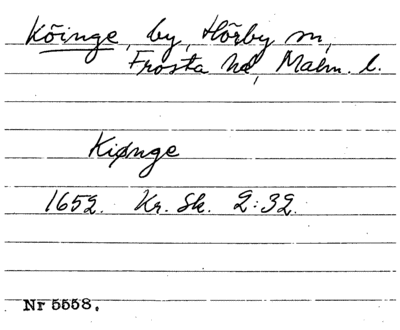 Köinge, by, Hörby sn,
Frosta hd, Malm. l.
Kiønge
1652. Kr. Sk. 2:32.
Nr 5558.